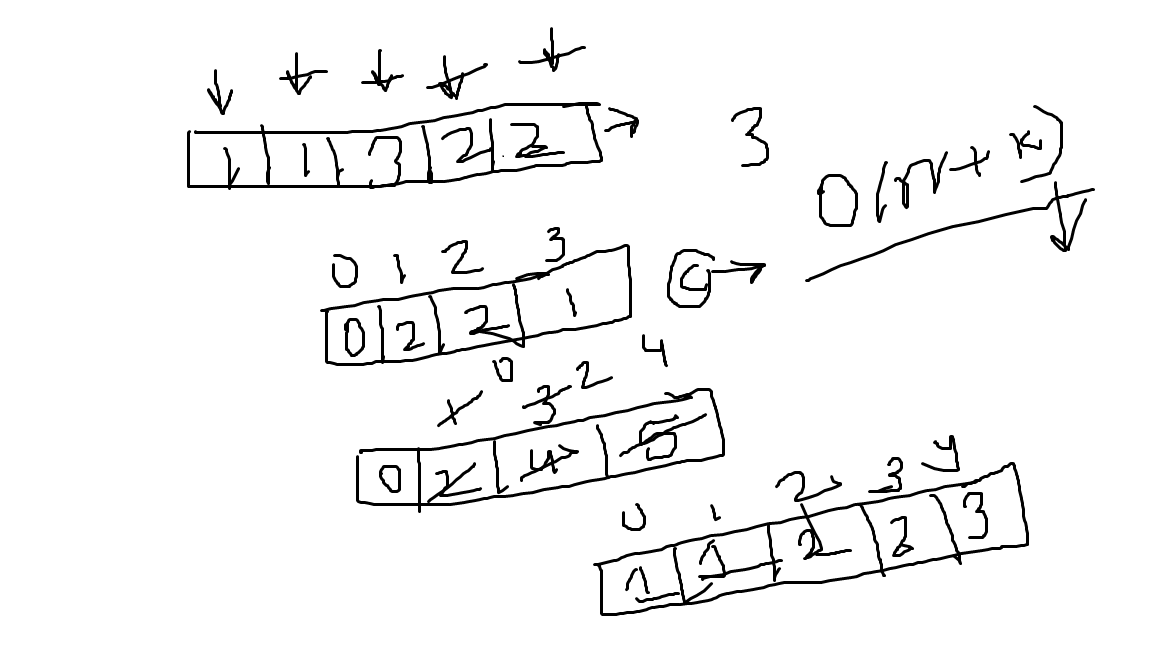 1 1 3 2 2
3
O(N + K)
0 1 2 3
0 2 2 1
0 2 4
0 2 4 5
0 1 2 3 4
1 1 2 2 3